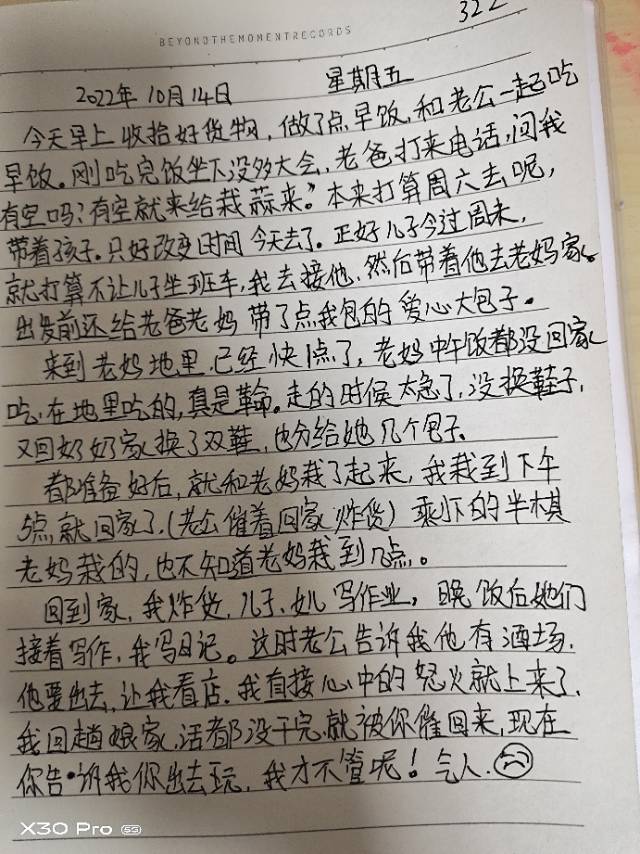 322
BEYONDTHEMOMENTRECORDS
2022年10月14日 星期五
今天早上收拾好货物，做了点早饭，和老公一起吃
早饭。刚吃完饭坐下没多大会，老爸打来电话，问我
有空吗？有空就来给我蒜来。本来打算周六去呢，
带着孩子。只好改变时间今天去了。正好儿子今过周末，
就打算不让儿子坐班车，我去接他，然后带着他去老妈家。
出发前还给老爸老妈带了点我包的爱心大包子。
来到老妈地里已经快1点了，老妈中午饭都没回家
吃，在地里吃的，真是革命。走的时候太急了，没换鞋子，
又回奶奶家换了双鞋，也分给她几个包子。
都准备好后，就和老妈栽了起来，我栽到下午
5点就回家了，(老公催着回家炸货）乘下的半棋
老妈栽的，也不知道老妈栽到几点。
回到家，我炸货，儿子、女儿写作业，晚饭后她们
接着写作，我写日记。这时老公告诉我他有酒场，
他要出去，让我看店，我直接心中的怒火就上来了，
我回趟娘家，活都没干完就被你催回来，现在
你告诉我你出去玩，我才不管呢！气人。
X30 Pro 5G